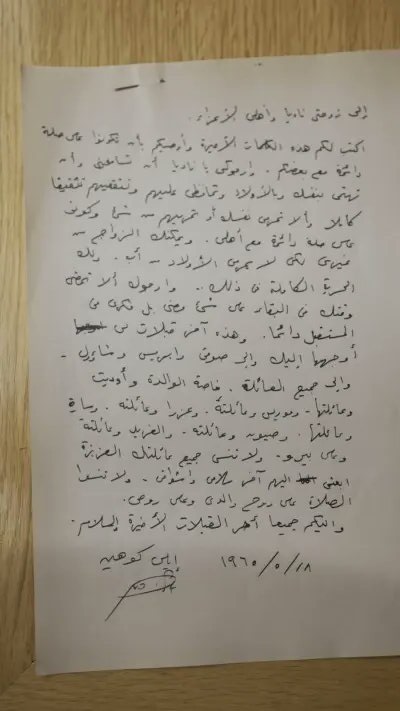 إلى زوجتي ناديا وأهلي الأعزاء.
اكتب لكم هذه الكلمات الأخيرة وأوصيكم بأن تكونوا على صلة
دائمة مع بعضكم. وأرجوكي يا ناديا أن تسامحيني وأن
تهتمي بنفسك وبالأولاد وتحافظي عليهم وتثقفيهم تثقيفا
كاملا وألا تحرمي نفسك أو تحرميهم من شيء وكوني
على صلة دائرة مع أهلي. ويمكنك الزواج من
غيري لكي لا تحرمي الأولاد من أب. ولك
الحرية الكاملة في ذلك.. وأرجوك ألا تمضي
وقتك في البكاء على شيء مضى بل فكري في
المستقبل دائما. وهذه آخر قبلات من
أوجهها إليك وإلى صوفي وايريس وشاؤول -
وإلى جميع العائلة. خاصة الوالدة وأوديت
وعائلتها - وموريس وعائلته. وعزرا وعائلته. وسارة
وعائلتها. وصيون وعائلته - والفريد وعائلته
وعلى بيرو- ولا تنسي جميع عائلتك العزيزة
ابعثي اليهم آخر سلامي وأشواقي - ولا تنسوا
الصلاة على روح والدي وعلى روحي.
واليكم جميعا آخر القبلات الأخيرة والسلام.
١٩٦٥/٥/١٨ إيلي كوهين